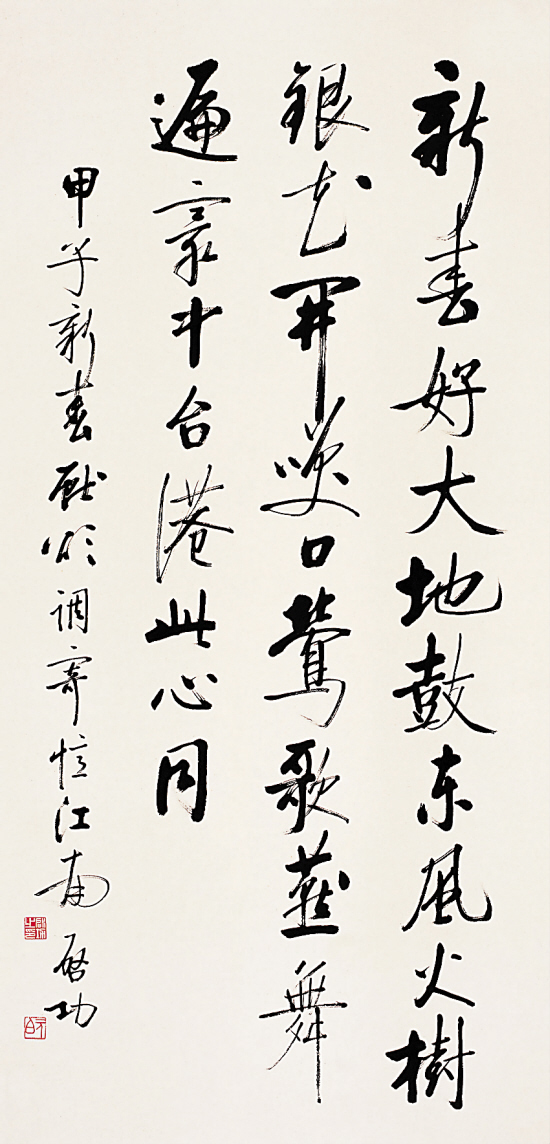 新春好大地鼓东风火樹
銀花開咲口鶯歌燕舞
遍寰中台港此心同
甲子新春献頌調寄憶江南
啓功